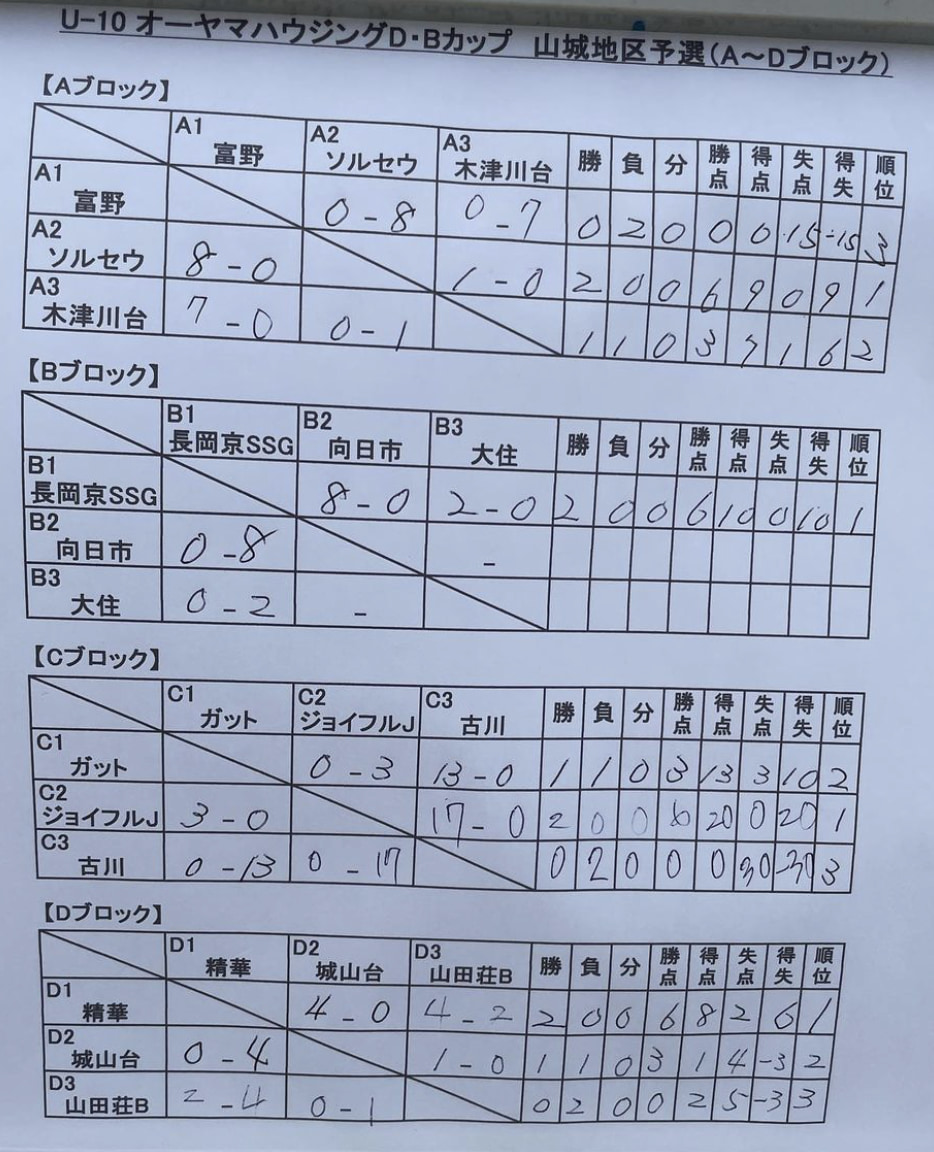 U-10 オーヤマハウジングD・Bカップ 山城地区予選(A～Dブロック)
【Aブロック】
A1 富野 A2 ソルセウ A3 木津川台 勝 負 分 勝点 得点 失点 得失 順位
A1 富野 0 - 8 0 - 7 0 2 0 0 0 15 -15 3
A2 ソルセウ 8 - 0 1 - 0 2 0 0 6 9 0 9 1
A3 木津川台 7 - 0 0 - 1 1 1 0 3 7 1 6 2
【Bブロック】
B1 長岡京SSG B2 向日市 B3 大住 勝 負 分 勝点 得点 失点 得失 順位
B1 長岡京SSG 8 - 0 2 - 0 2 0 0 6 10 0 10 1
B2 向日市 0 - 8 -
B3 大住 0 - 2 -
【Cブロック】
C1 ガット C2 ジョイフルJ C3 古川 勝 負 分 勝点 得点 失点 得失 順位
C1 ガット 0 - 3 13 - 0 1 1 0 3 13 3 10 2
C2 ジョイフルJ 3 - 0 17 - 0 2 0 0 6 20 0 20 1
C3 古川 0 - 13 0 - 17 0 2 0 0 0 30 -30 3
【Dブロック】
D1 精華 D2 城山台 D3 山田荘B 勝 負 分 勝点 得点 失点 得失 順位
D1 精華 4 - 0 4 - 2 2 0 0 6 8 2 6 1
D2 城山台 0 - 4 1 - 0 1 1 0 3 1 4 -3 2
D3 山田荘B 2 - 4 0 - 1 0 2 0 0 2 5 -3 3